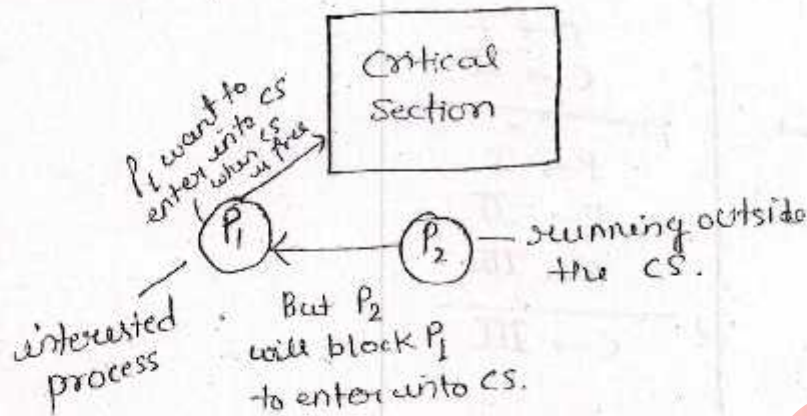 Critical
Section
P1 want to
enter into CS
when CS
is free
P1
P2
running outside
the CS.
interested
process
But P2
will block P1
to enter into CS.